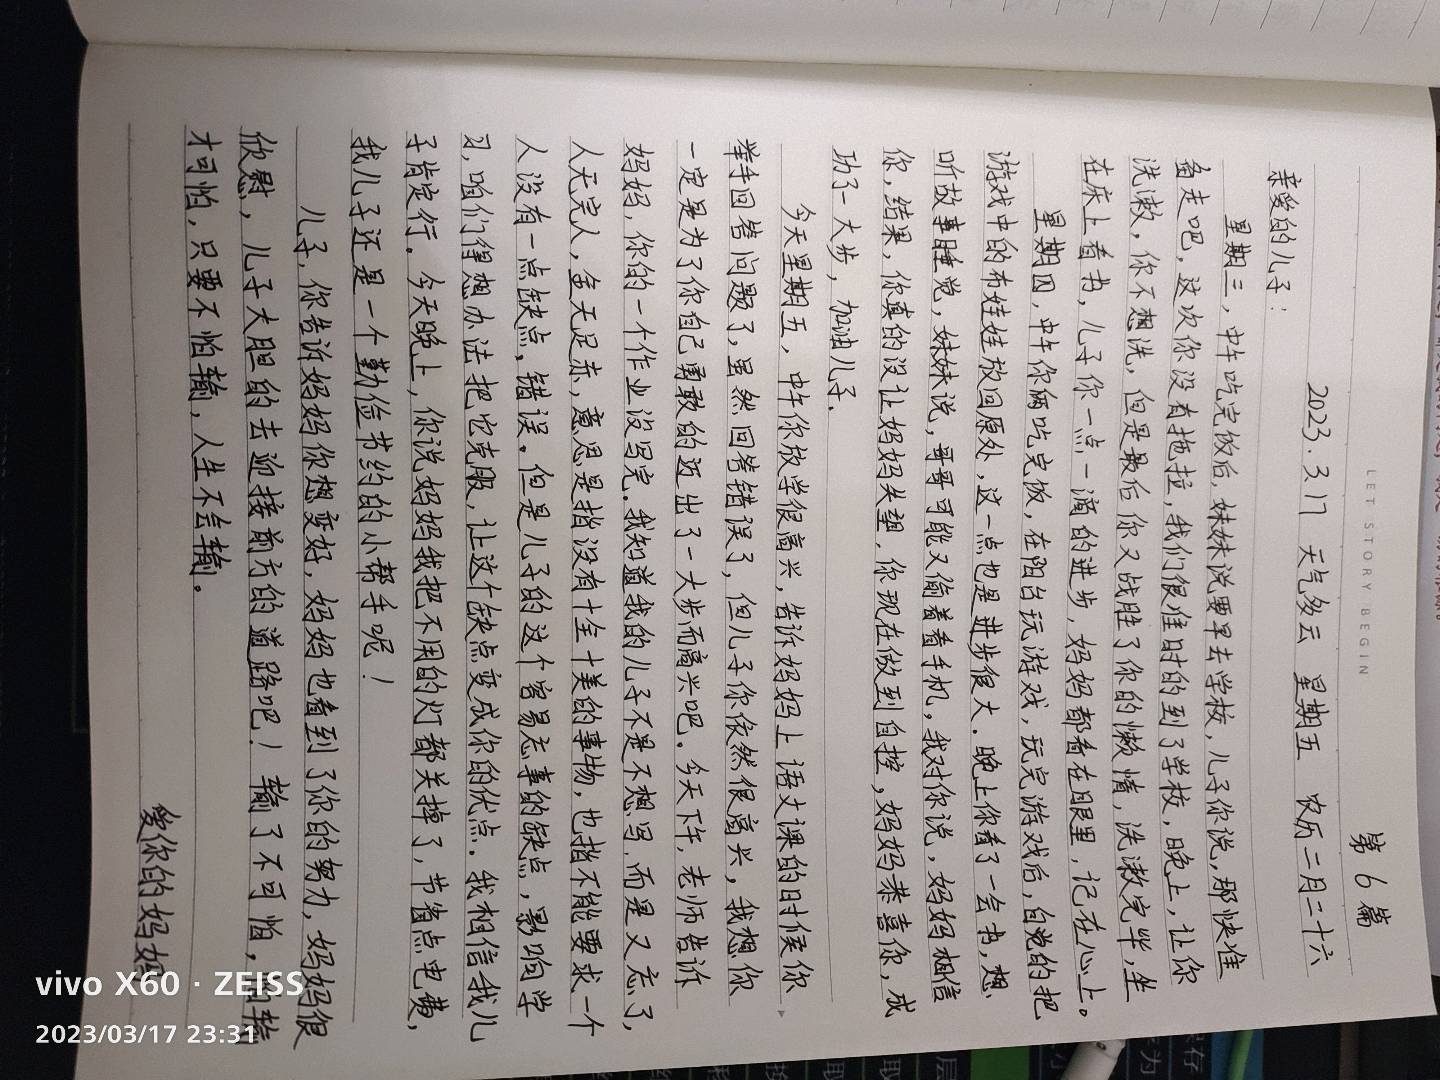 LET STORY BEGIN
第6篇
2023.3.17 天气多云 星期五 农历二月二十六
亲爱的儿子:
星期三,中午吃完饭后,妹妹说要早去学校,儿子你说,那快准
备走吧,这次你没有拖拉,我们很准时的到了学校,晚上,让你
洗漱,你不想洗,但是最后你又战胜了你的懒惰,洗漱完毕,坐
在床上看书,儿子你一点一滴的进步,妈妈都看在眼里,记在心上。
星期四,中午你俩吃完饭,在阳台玩游戏,玩完游戏后,自觉的把
游戏中的布娃娃放回原处,这一点也是进步很大.晚上你看了一会书,想
听故事睡觉,妹妹说,哥哥可能又偷着看手机,我对你说,妈妈相信
你,结果,你真的没让妈妈失望,你现在做到自控,妈妈恭喜你,成
功了一大步,加油儿子.
今天星期五,中午你放学很高兴,告诉妈妈上语文课的时候你
举手回答问题了,虽然回答错误了,但儿子你依然很高兴,我想你
一定是为了你自己勇敢的迈出了一大步而高兴吧.今天下午,老师告诉
妈妈,你的一个作业没写完.我知道我的儿子不是不想写,而是又忘了,
人无完人,金无足赤,意思是指没有十全十美的事物,也指不能要求一个
人没有一点缺点,错误.但是儿子的这个容易忘事的缺点,影响学
习,咱们得想办法把它克服,让这个缺点变成你的优点.我相信我儿
子肯定行.今天晚上,你说妈妈我把不用的灯都关掉了,节省点电费,
我儿子还是一个勤俭节约的小帮手呢!
儿子,你告诉妈妈你想变好,妈妈也看到了你的努力,妈妈很
欣慰,儿子大胆的去迎接前方的道路吧!输了不可怕,怕输
才可怕,只要不怕输,人生不会输。
爱你的妈妈
vivo X60 · ZEISS
2023/03/17 23:31